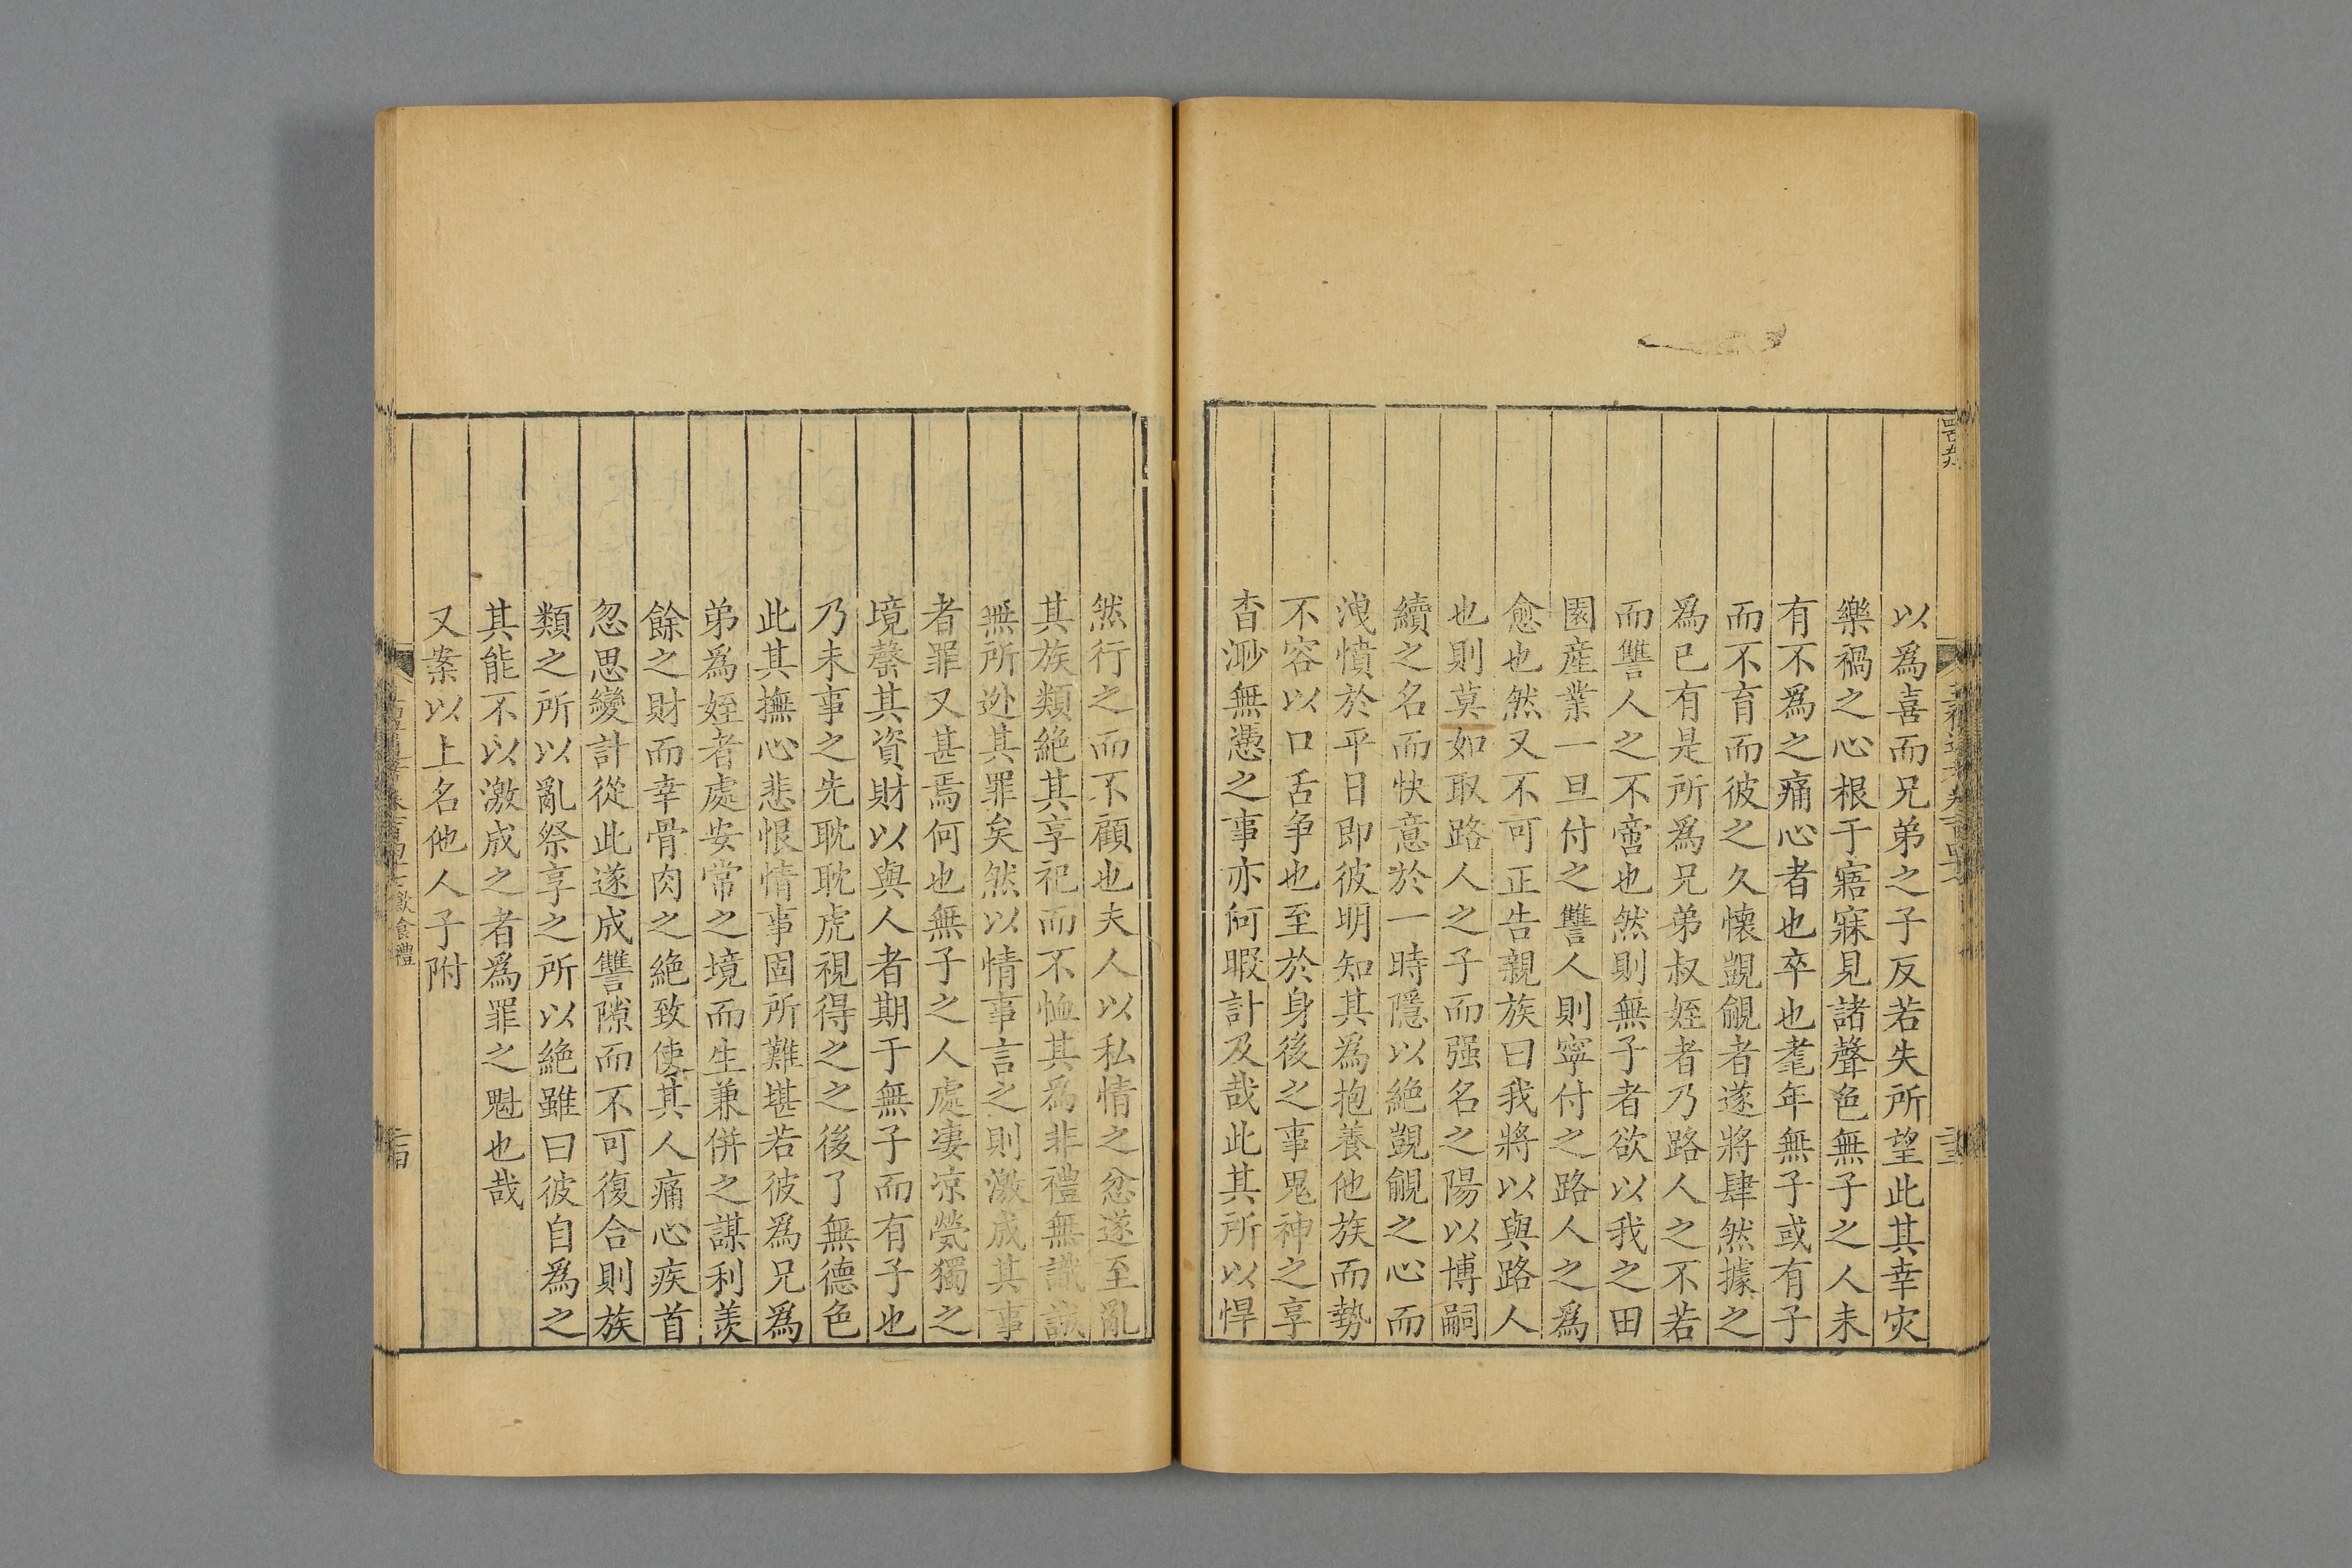 以爲喜而兄弟之子反若失所望此其幸灾
樂禍之心根于寤寐見諸聲色無子之人未
有不爲之痛心者也卒也耄年無子或有子
而不育而彼之久懐覬覦者遂將肆然據之
爲已有是所爲兄弟叔姪者乃路人之不若
而讐人之不啻也然則無子者欲以我之田
園産業一旦付之讐人則寧付之路人之爲
愈也然又不可正告親族曰我將以與路人
也則莫如取路人之子而强名之陽以博嗣
續之名而快意於一時隱以絶覬覦之心而
洩憤於平日即彼明知其爲抱養他族而勢
不容以口舌争也至於身後之事鬼神之享
杳渺無憑之事亦何暇計及哉此其所以悍
然行之而不顧也夫人以私情之忿遂至亂
其族類絶其享祀而不恤其爲非禮無識誠
無所逊其罪矣然以情事言之則激成其事
者罪又甚焉何也無子之人處凄凉煢獨之
境罄其資財以與人者期于無子而有子也
乃未事之先耽耽虎視得之之後了無德色
此其撫心悲恨情事固所難堪若彼爲兄爲
弟爲姪者處安常之境而生兼併之謀利羨
餘之財而幸骨肉之絶致使其人痛心疾首
忽思變計從此遂成讐隙而不可復合則族
類之所以亂祭享之所以絶雖曰彼自爲之
其能不以激成之者爲罪之魁也哉
又案以上名他人子附
飲食禮